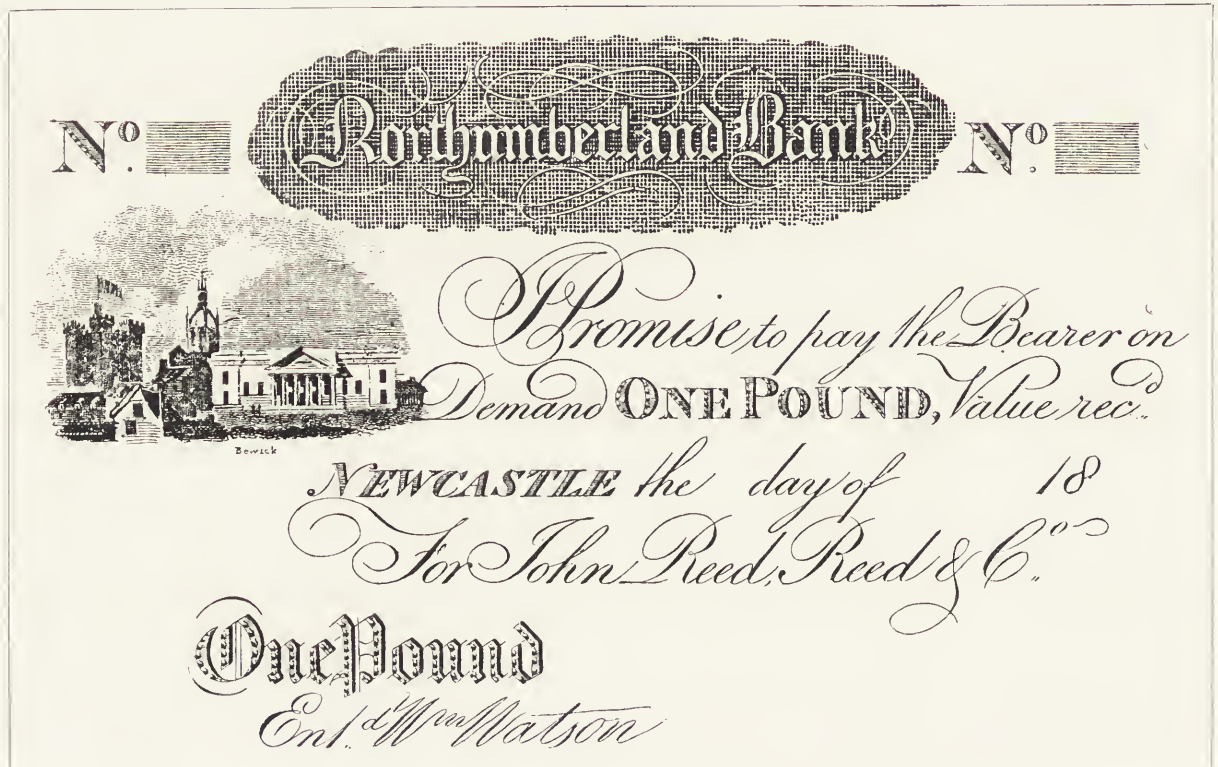 Nº. Northumberland Bank Nº.
I Promise to pay the Bearer on
Demand ONE POUND, Value rec.d
Bewick
NEWCASTLE the day of 18
For John Reed, Reed & C.º
One Pound
Ent.d Wm Watson